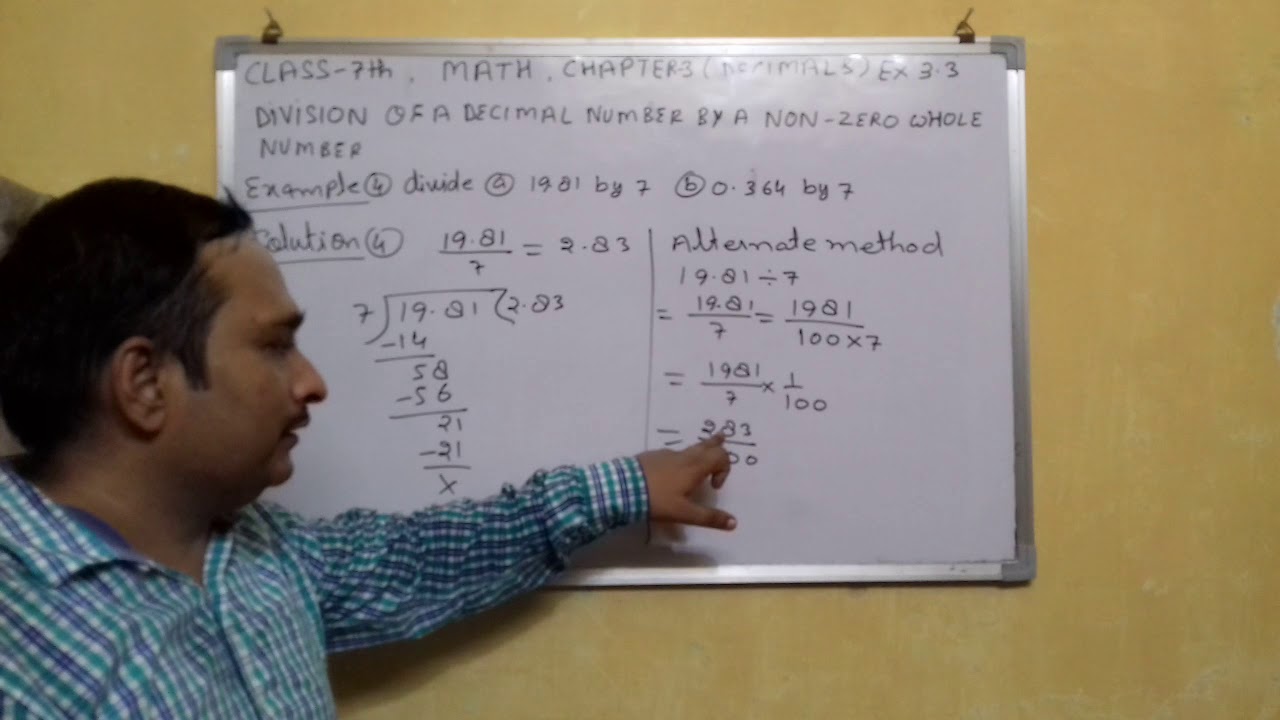 CLASS-7th, MATH, CHAPTER3 (DECIMALS) EX 3.3
DIVISION OF A DECIMAL NUMBER BY A NON-ZERO WHOLE
NUMBER
Example ④ divide ⓐ 1981 by 7 ⓑ 0.364 by 7
Solution ④
19.81/7 = 2.83
7)19.81(2.83
-14
58
-56
21
-21
x
Alternate method
19.81÷7
= 19.81/7 = 1981/100×7
= 1981/7 × 1/100
= 283/